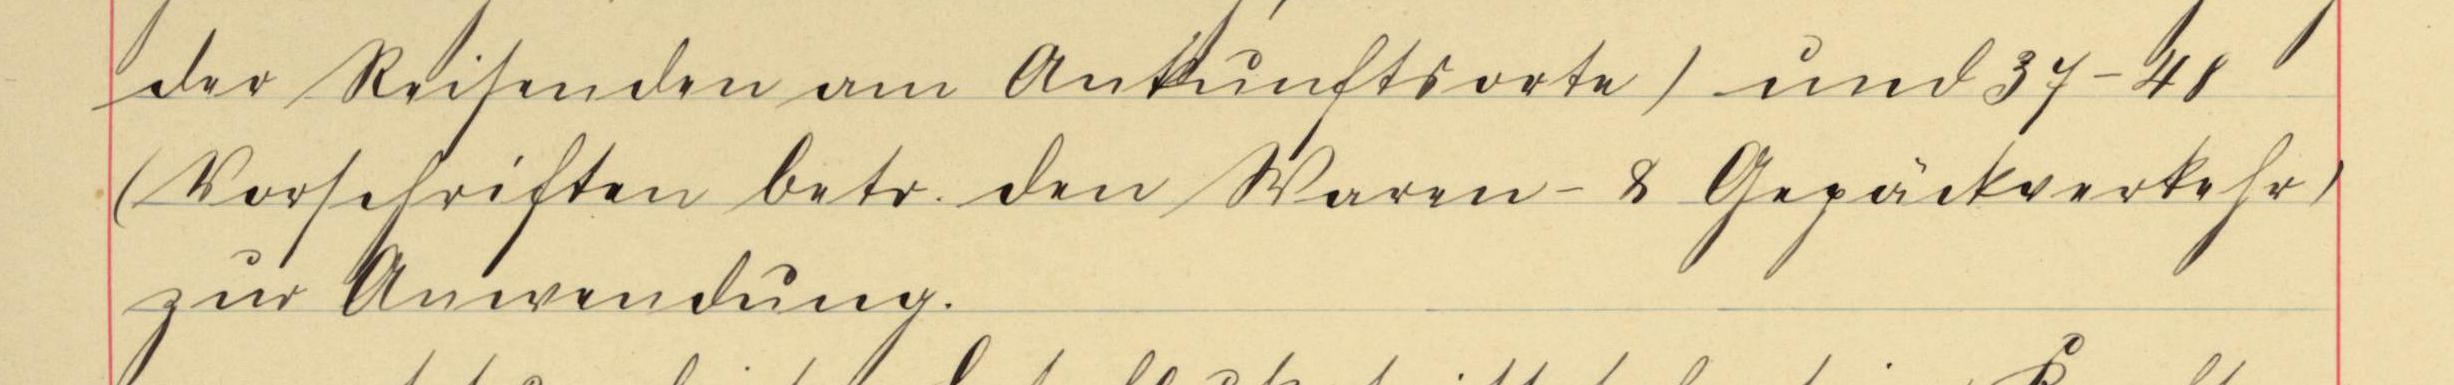 der Reisenden am Ankunftsorte) und 37-48
(Vorschriften betr. den Waren- & Gepäckverkehr)
zur Anwendung.